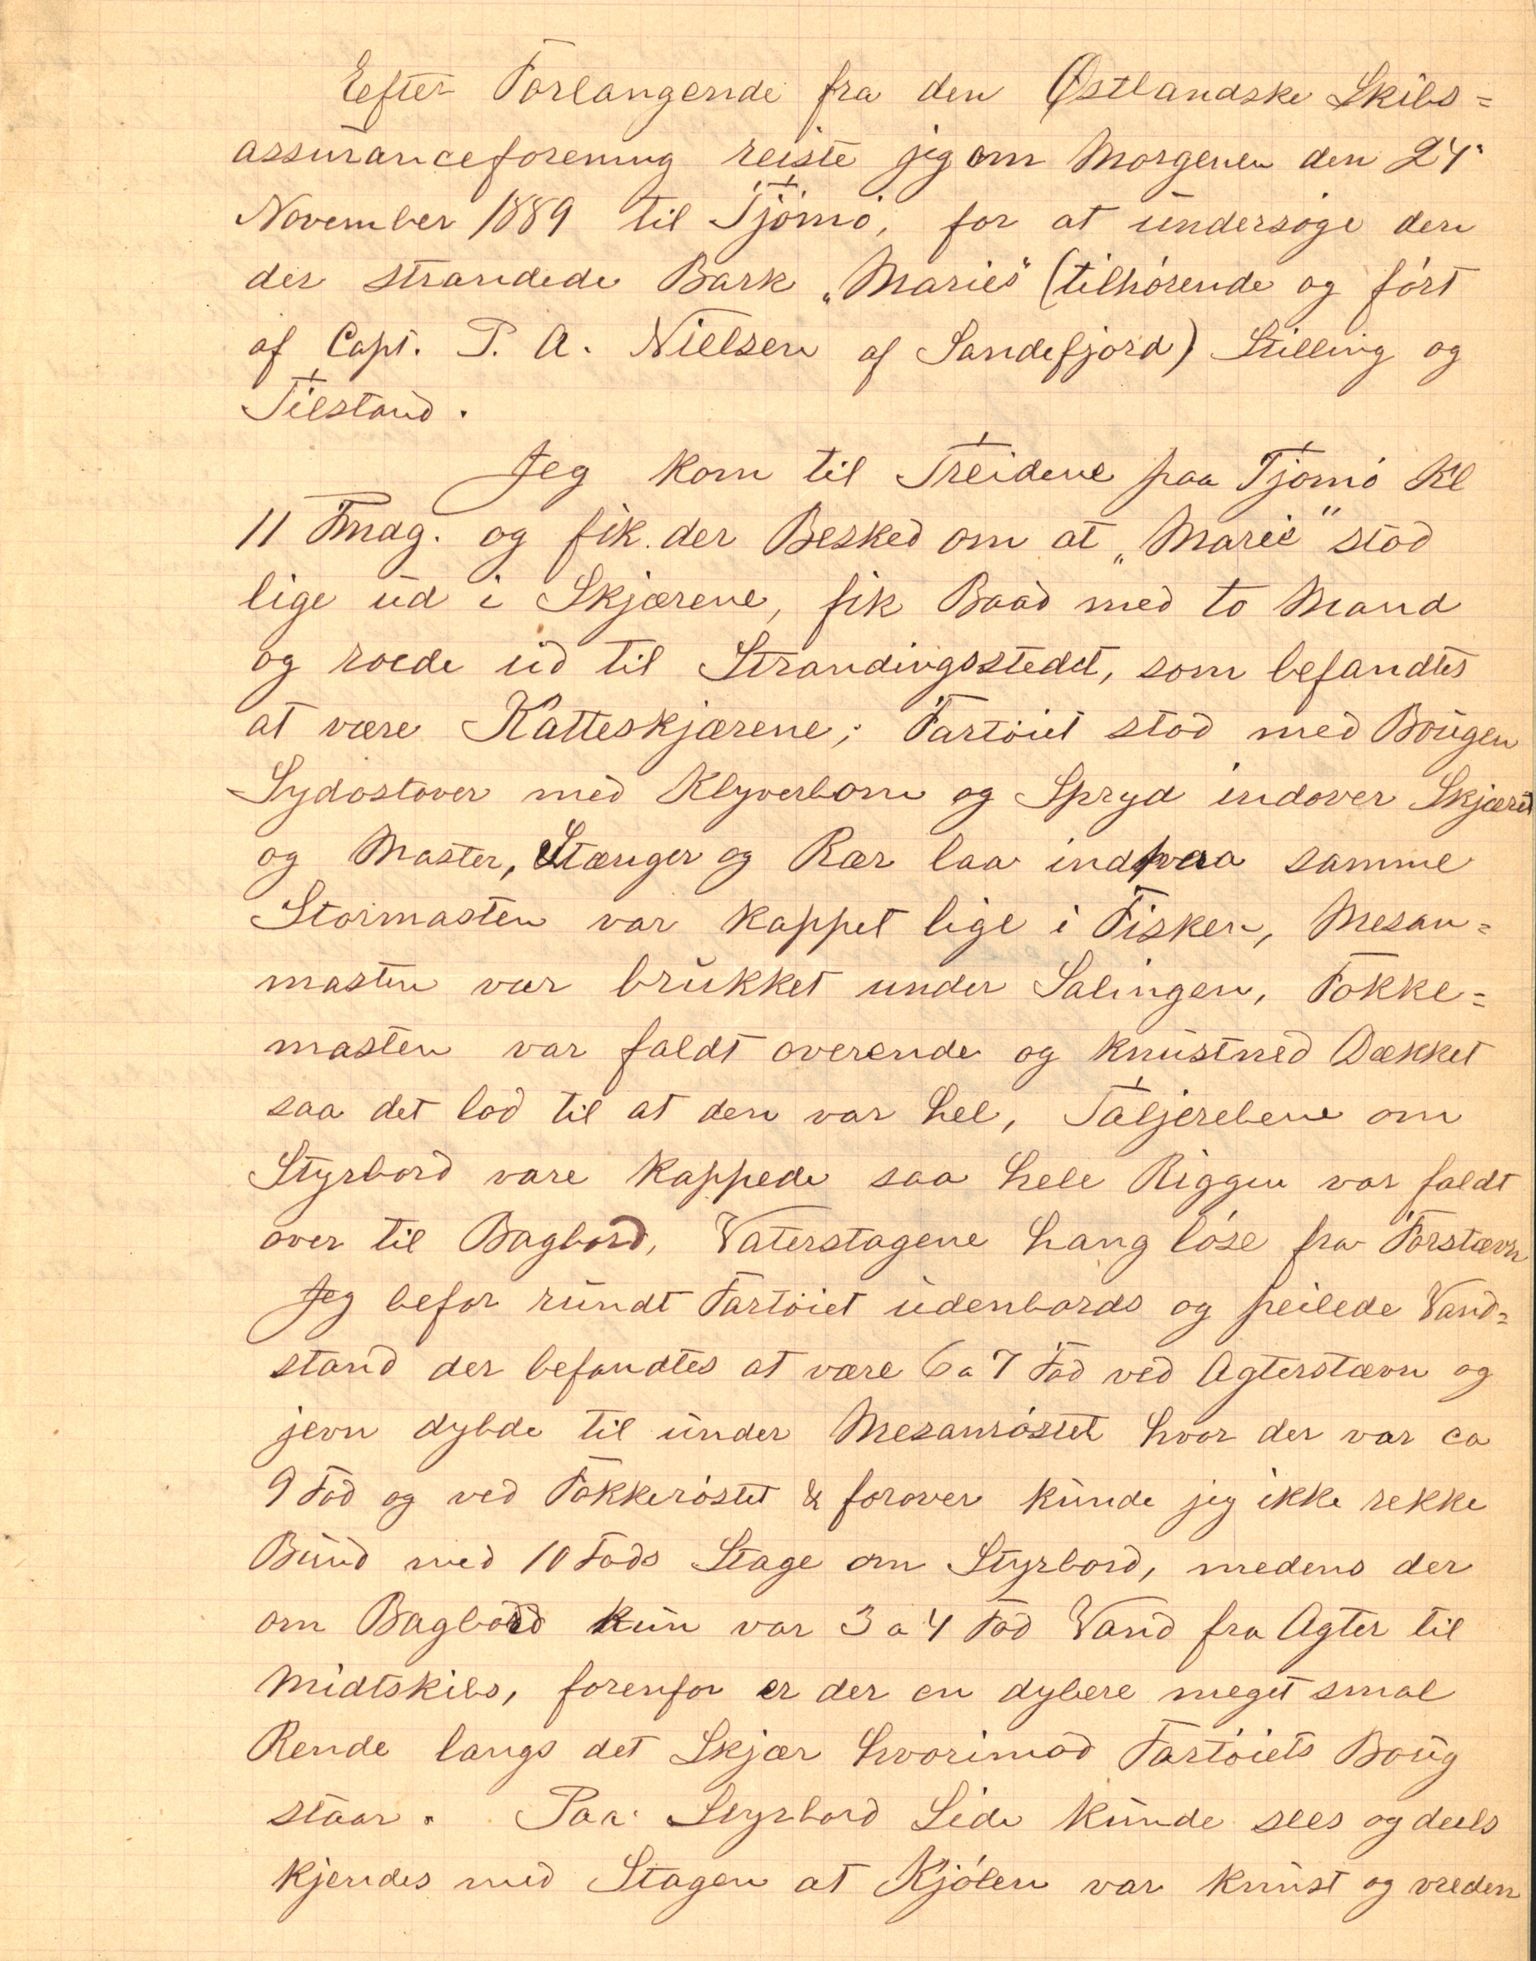 Eefter Forlangende fra den Østlandske Skibs=
assuranceforening reiste jeg om Morgenen den 24'
November 1889 til Tjömö, for at undersöge den
der strandede Bark „Maries" (tilhörende og fört
af Capt. P. A. Nielsen af Sandefjord) Stilling og
Tilstand.
Jeg kom til Treidene paa Tjömö Kl
11 Fmdg. og fik der Besked om at „Marie" stod
lige ud i Skjærene, fik Baad med to Mand
og roede ud til Strandingsstedet, som befandtes
at være Katteskjærene; Fartöiet stod med Bougen
Sydostover med Klyverbom og Spryd indover Skjæret
og Master, Stænger og Rær laa indpaa samme
Stormasten var kappet lige i Fisken, Mesan=
masten var brukket under Salingen, Fokke=
masten var faldt overende og knust ned Dækket
saa det lod til at den var hel, Taljerebene om
Styrbord vare kappede saa hele Riggen var faldt
over til Bagbord, Vaterstagene hang löse fra Forstævn
Jeg befor rundt Fartöiet udenbords og peilede Vand=
stand der befandtes at være 6 a 7 Fod ved Agterstævn og
jevn dybde til under Mesanröstet hvor der var ca
9 Fod og ved Fokkeröstet & forover kunde jeg ikke rekke
Bund med 10 Fods Stage om Styrbord, medens der
om Bagbord kun var 3 a 4 Fod Vand fra Agter til
Midtskibs, forenfor er der en dybere meget smal
Rende langs det Skjær hvorimod Fartöiets Boug
staar. Paa Styrbord Side kunde sees og deels
kjendes med Stagen at Kjölen var knust og vreden